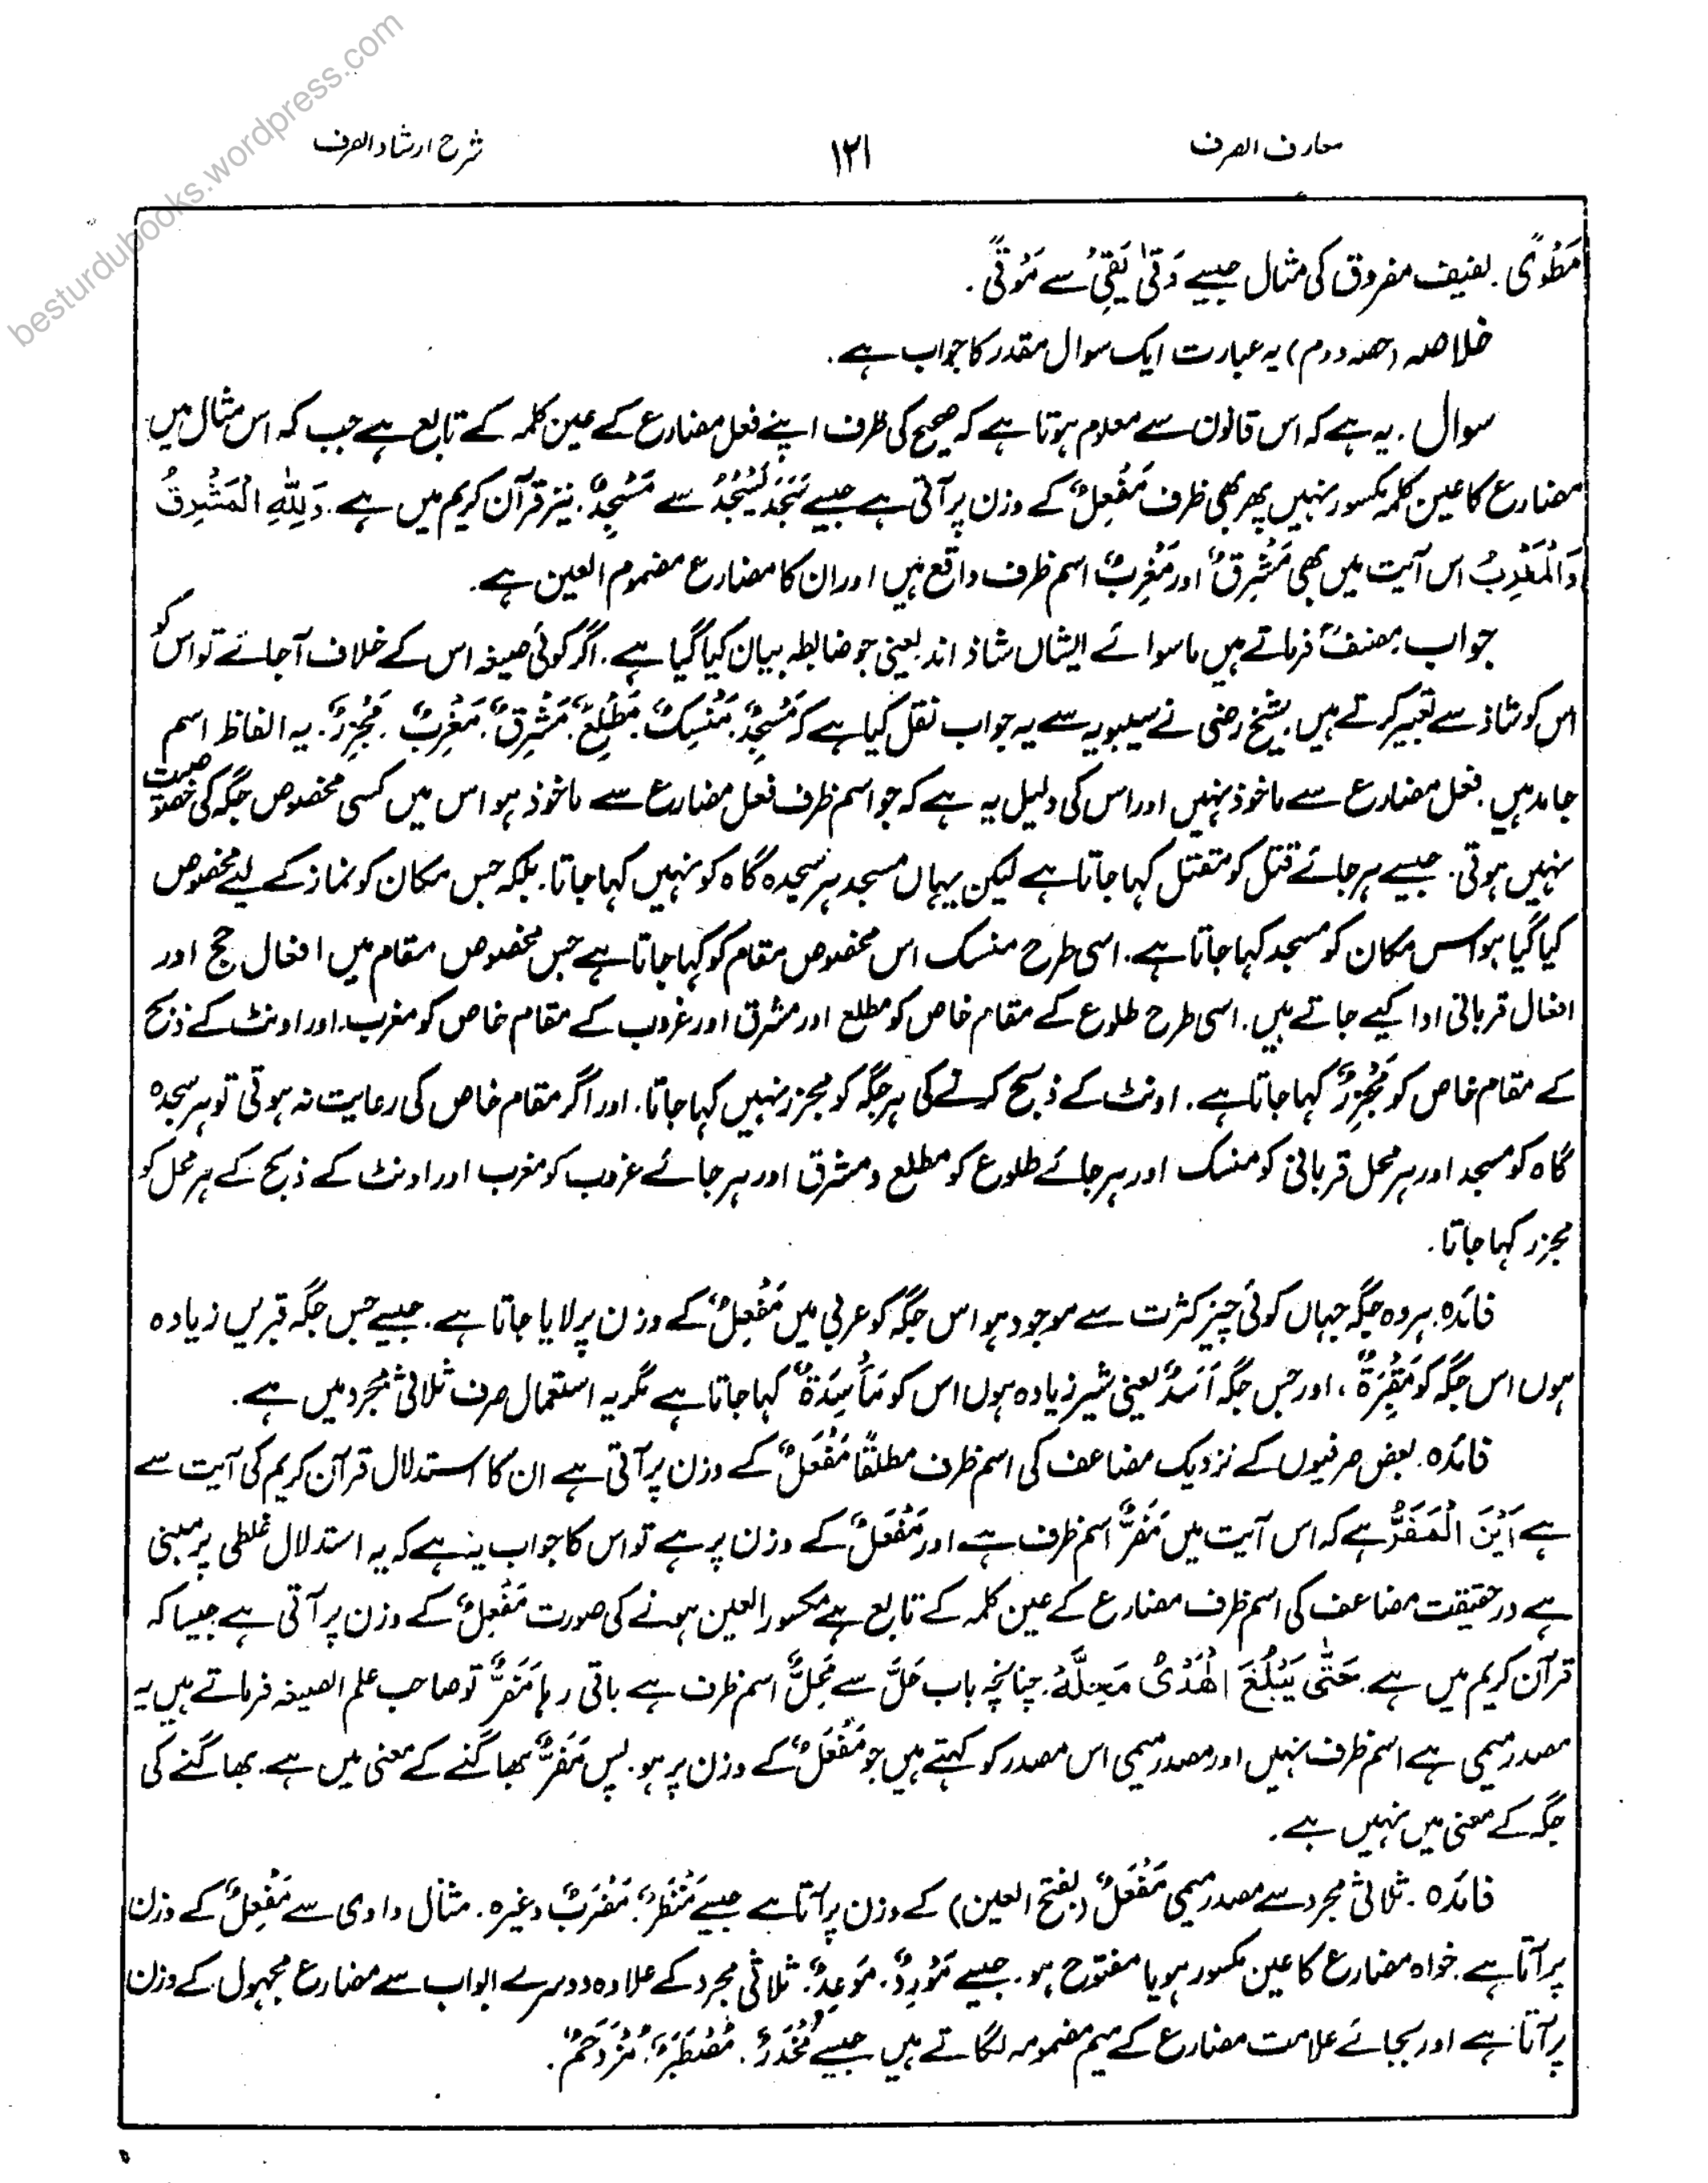 besturdubooks.wordpress.com
معارف الصرف ۱۲۱ شرح ارشاد الصرف
مَطْوًى. لفیف مفروق کی مثال جیسے وَقٰی یَقِیْ سے مَوْقًی.
خلاصہ (حصہ دوم) یہ عبارت ایک سوال مقدر کا جواب ہے.
سوال. یہ ہے کہ اس قانون سے معلوم ہوتا ہے کہ صحیح کی ظرف اپنے فعل مضارع کے عین کلمہ کے تابع ہے جب کہ اس مثال میں
مضارع کا عین کلمہ مکسور نہیں پھر بھی ظرف مَفْعِلٌ کے وزن پر آتی ہے جیسے سَجَدَ یَسْجُدُ سے مَسْجِدٌ. نیز قرآن کریم میں ہے. وَلِلّٰهِ الْمَشْرِقُ
وَالْمَغْرِبُ اس آیت میں بھی مَشْرِقٌ اور مَغْرِبٌ اسم ظرف واقع ہیں اور ان کا مضارع مضموم العین ہے.
جواب. مصنفؒ فرماتے ہیں ماسوائے ایشاں شاذ اند یعنی جو ضابطہ بیان کیا گیا ہے. اگر کوئی صیغہ اس کے خلاف آجائے تو اس کو
اس کو شاذ سے تعبیر کرتے ہیں. شیخ رضی نے سیبویہ سے یہ جواب نقل کیا ہے کہ مَسْجِدٌ. مَنْسِکٌ. مَطْلِعٌ. مَشْرِقٌ. مَغْرِبٌ. مَجْزِرٌ. یہ الفاظ اسم
جامد ہیں. فعل مضارع سے ماخوذ نہیں اور اس کی دلیل یہ ہے کہ جو اسم ظرف فعل مضارع سے ماخوذ ہو اس میں کسی مخصوص جگہ کی خصوصیت
نہیں ہوتی. جیسے ہر جائے قتل کو مقتل کہا جاتا ہے لیکن یہاں مسجد ہر سجدہ گاہ کو نہیں کہا جاتا. بلکہ جس مکان کو نماز کے لیے مخصوص
کیا گیا ہو اس مکان کو مسجد کہا جاتا ہے. اسی طرح منسک اس مخصوص مقام کو کہا جاتا ہے جس مخصوص مقام میں افعال حج اور
افعال قربانی ادا کیے جاتے ہیں. اسی طرح طلوع کے مقام خاص کو مطلع اور مشرق اور غروب کے مقام خاص کو مغرب. اور اونٹ کے ذبح
کے مقام خاص کو مَجْزِرٌ کہا جاتا ہے. اونٹ کے ذبح کرنے کی ہر جگہ کو مجزر نہیں کہا جاتا. اور اگر مقام خاص کی رعایت نہ ہوتی تو ہر سجدہ
گاہ کو مسجد اور ہر محل قربانی کو منسک اور ہر جائے طلوع کو مطلع و مشرق اور ہر جائے غروب کو مغرب اور اونٹ کے ذبح کے ہر محل کو
مجزر کہا جاتا.
فائدہ. ہر وہ جگہ جہاں کوئی چیز کثرت سے موجود ہو اس جگہ کو عربی میں مَفْعِلٌ کے وزن پر لایا جاتا ہے. جیسے جس جگہ قبریں زیادہ
ہوں اس جگہ کو مَقْبِرَةٌ، اور جس جگہ اَسَدٌ یعنی شیر زیادہ ہوں اس کو مَأْسِدَةٌ کہا جاتا ہے مگر یہ استعمال صرف ثلاثی مجرد میں ہے.
فائدہ. بعض صرفیوں کے نزدیک مضاعف کی اسم ظرف مطلقًا مَفْعَلٌ کے وزن پر آتی ہے ان کا استدلال قرآن کریم کی آیت سے
ہے اَیْنَ الْمَفَرُّ ہے کہ اس آیت میں مَفَرٌّ اسم ظرف ہے اور مَفْعَلٌ کے وزن پر ہے تو اس کا جواب یہ ہے کہ یہ استدلال غلطی پر مبنی
ہے درحقیقت مضاعف کی اسم ظرف مضارع کے عین کلمہ کے تابع ہے مکسور العین ہونے کی صورت مَفْعِلٌ کے وزن پر آتی ہے جیسا کہ
قرآن کریم میں ہے. حَتّٰی یَبْلُغَ الْهَدْیُ مَحِلَّهٗ. چنانچہ باب حَلَّ سے مَحِلٌّ اسم ظرف ہے باقی رہا مَفَرٌّ تو صاحب علم الصیغہ فرماتے ہیں یہ
مصدر میمی ہے اسم ظرف نہیں اور مصدر میمی اس مصدر کو کہتے ہیں جو مَفْعَلٌ کے وزن پر ہو. پس مَفَرٌّ بھاگنے کے معنی میں ہے. بھاگنے کی
جگہ کے معنی میں نہیں ہے.
فائدہ. ثلاثی مجرد سے مصدر میمی مَفْعَلٌ (بفتح العین) کے وزن پر آتا ہے جیسے مَنْظَرٌ. مَضْرَبٌ وغیرہ. مثال واوی سے مَفْعِلٌ کے وزن
پر آتا ہے. خواہ مضارع کا عین مکسور ہو یا مفتوح ہو. جیسے مَوْرِدٌ. مَوْعِدٌ. ثلاثی مجرد کے علاوہ دوسرے ابواب سے مضارع مجہول کے وزن
پر آتا ہے اور بجائے علامت مضارع کے میم مضمومہ لگاتے ہیں جیسے مُصْطَبَرٌ. مُزْدَحَمٌ.